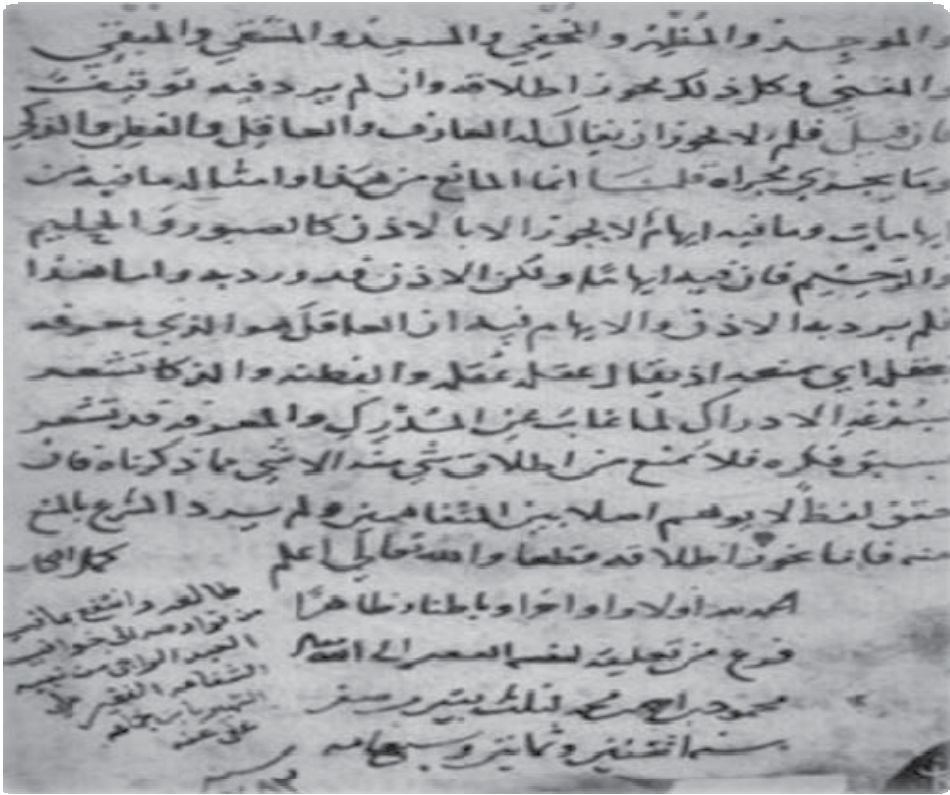 والموجد والمنزل والمخفي والمسعد والمشقي والمبقي
والمغني وكل ذلك يجوز اطلاقه وان لم يرد فيه توقيف
فان قيل فلم لا يجوز ان يقال له العارف والعاقل والفطن والذكي
وما يجري مجراه قلنا انما المانع من هذا وامثاله ما فيه من
ايهامات وما فيه ايهام لا يجوز الا بالاذن كالصبور والحليم
والرحيم فان فيه ايهاما ولكن الاذن قد ورد به واما هذا
فلم يرد به الاذن والايهام فيه ان العاقل هو الذي معرفه
تعقله اي تمنعه اذ يقال عقله عقله والفطنه والذكا تشعر
بسرعه الادراك لما غاب عن المدرك والمعرفه قد تشعر
بسبق فكره فلا يمنع من اطلاق شي منه الا شي مما ذكرناه فان
تحقق لفظ لا يوهم اصلا بين المتفاهمين ولم يرد الشرع بالمنع
منه فانا نجوز اطلاقه قطعا والله تعالى اعلم
الحمد لله اولا واخرا وباطنا وظاهرا
فرغ من تعليقه لنفسه الفقير الى الله
محمود بن احمد بن محمد لثلاث بقين من صفر
سنه اثنتين وثمانين وسبعمايه
طالعه وانتفع بما فيه
العبد الراجي من نبيه
الشفاعه الفقير علي
عفي عنه
سنه